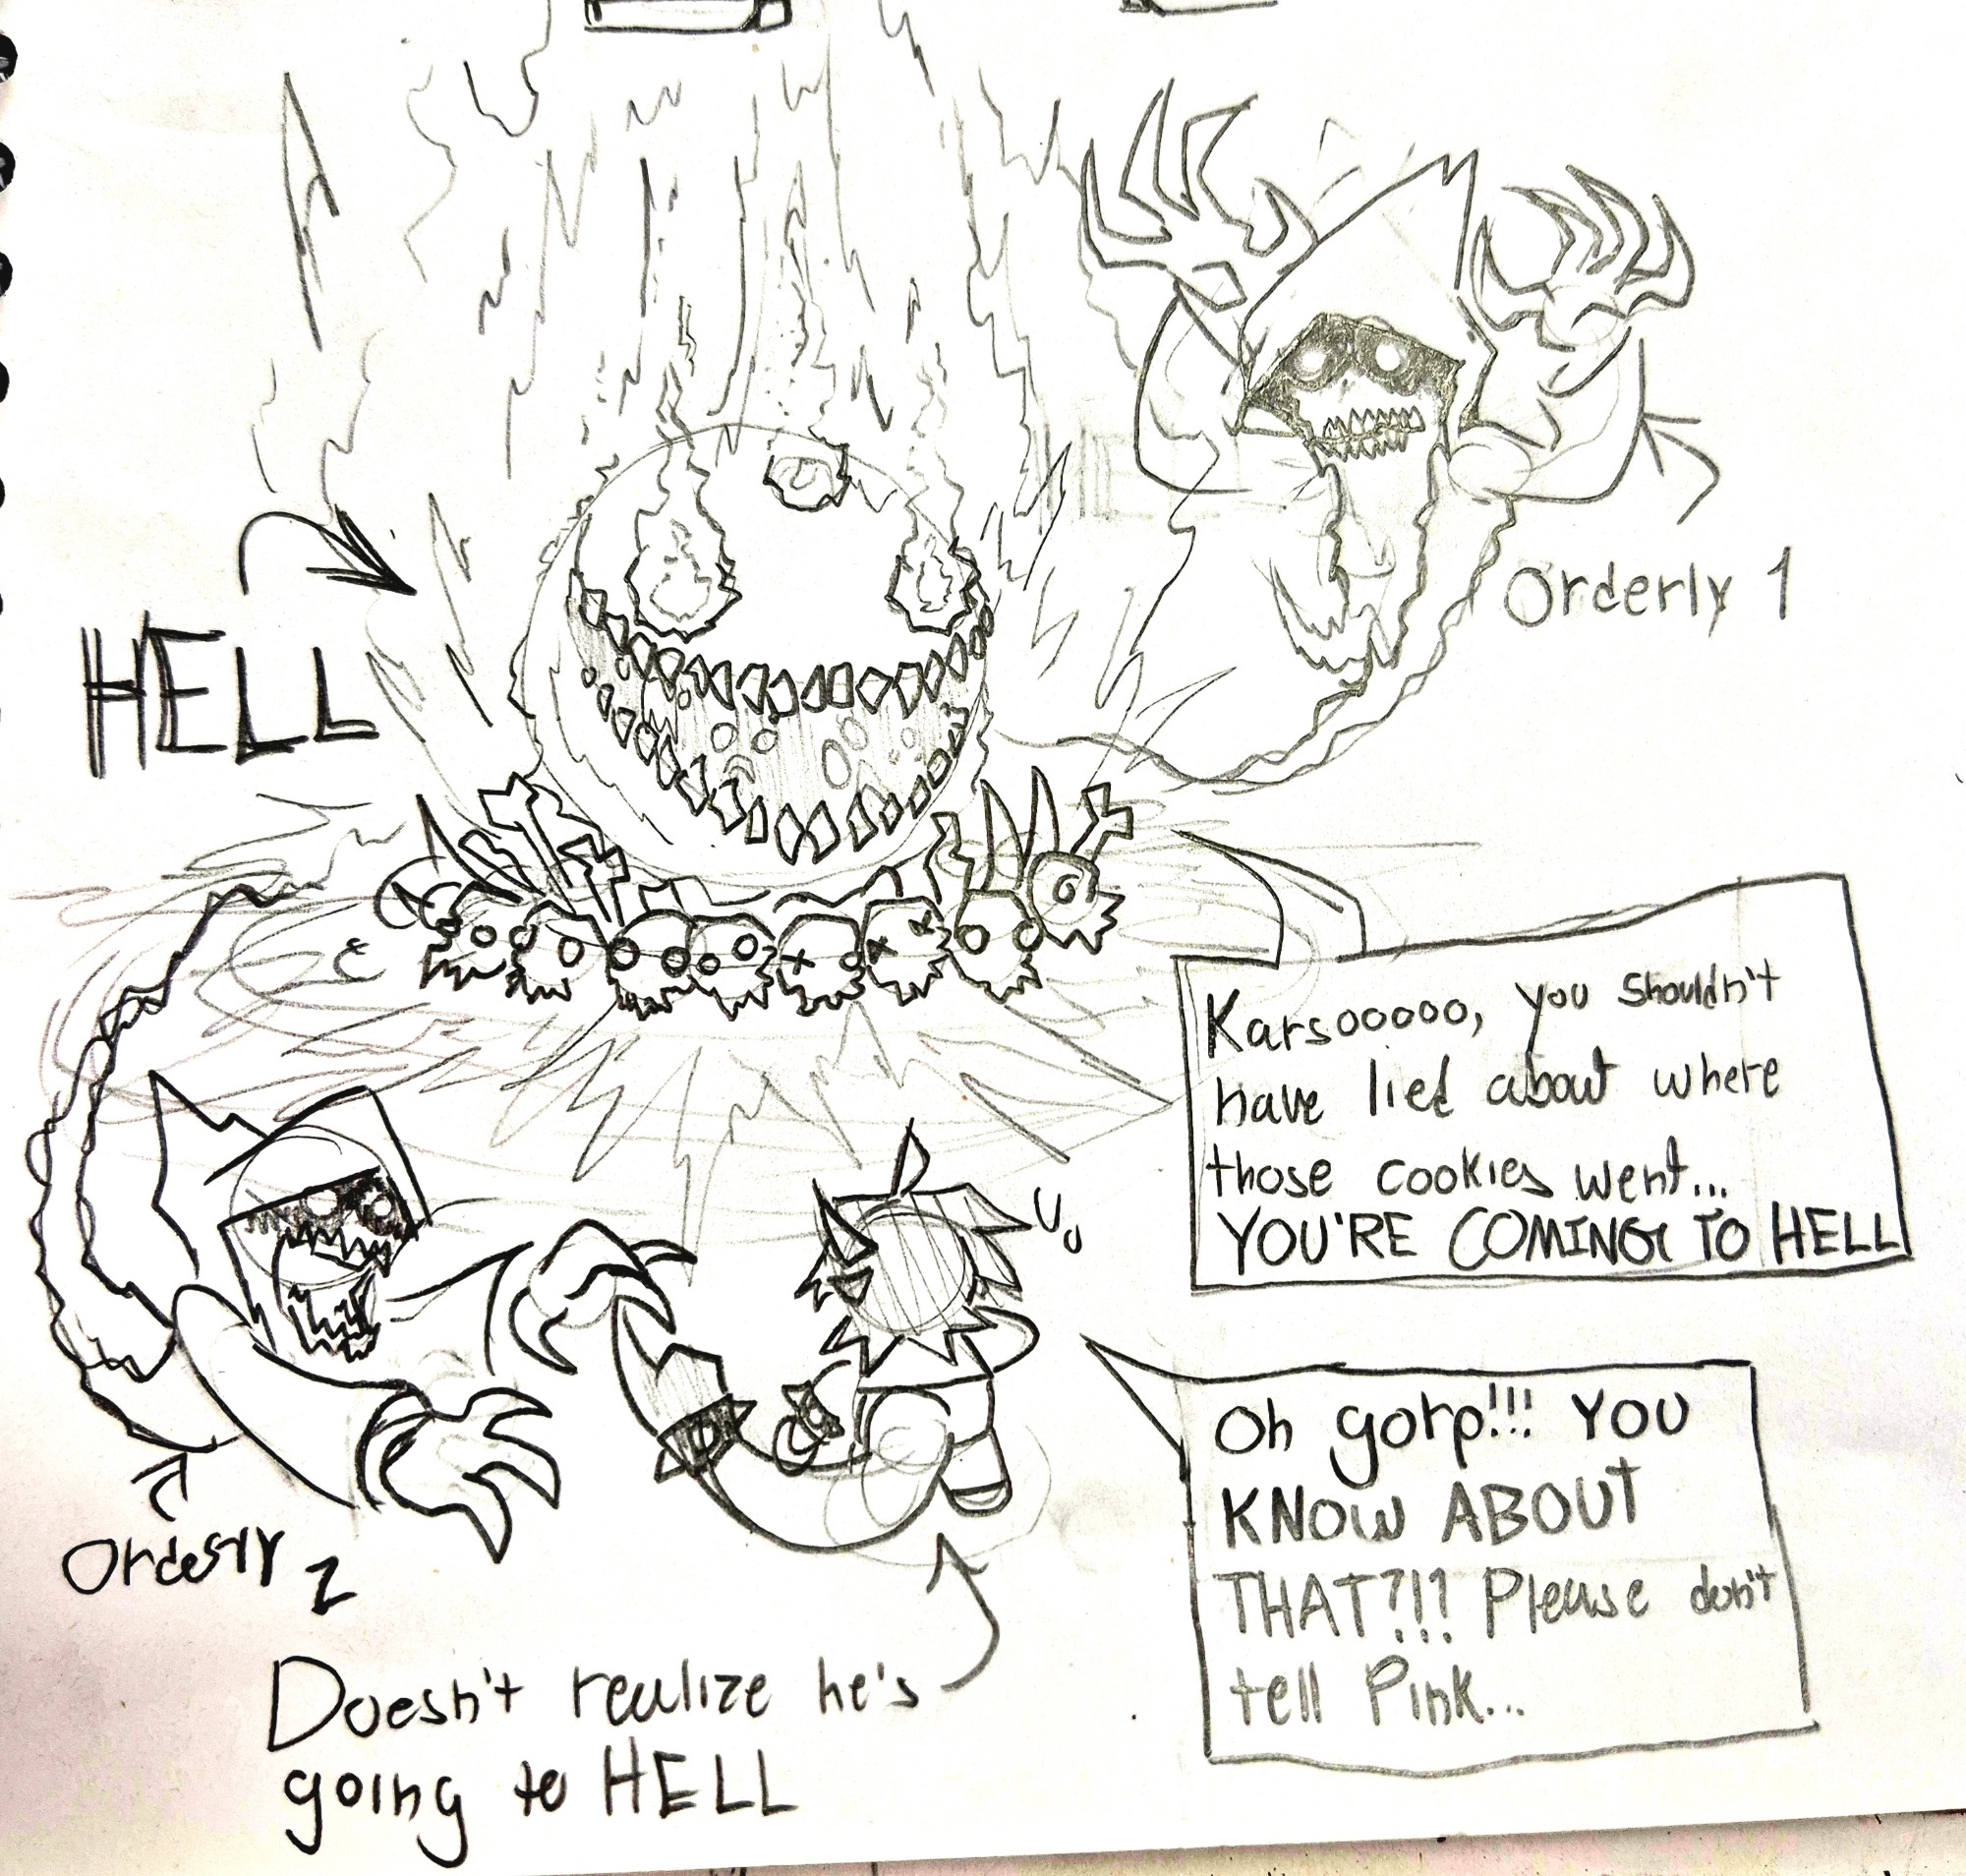 HELL
Orderly 1
Karsooooo, you shouldn't
have lied about where
those cookies went...
YOU'RE COMING TO HELL
Oh gorp!!! YOU
KNOW ABOUT
THAT?!! Please don't
tell Pink...
Orderly 2
Doesn't realize he's
going to HELL